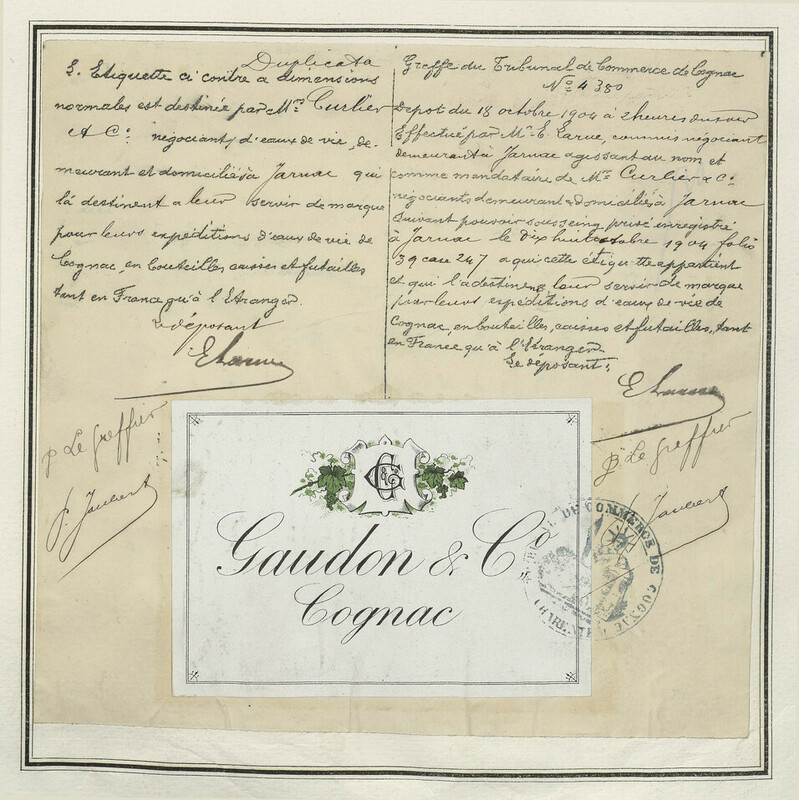 Duplicata
L. Etiquette ci contre a dimensions
normales est destinée par Mrs Curlier
& Co. négociants d'eaux de vie, de-
meurant et domiciliés à Jarnac qui
là destinent a leur servir de marque
pour leurs expéditions d'eaux de vie de
Cognac, en bouteilles, caisses et futailles
tant en France qu'à l'Etranger.
Le déposant
E Larue
p Le Greffier
J. Jaubert
Greffe du Tribunal de Commerce de Cognac
No 4380
Depot du 18 octobre 1904 à 2 heures du soir
Effectué par Mr E. Larue, commis négociant
demeurant à Jarnac agissant au nom et
comme mandataire de Mrs Curlier & Co
négociants demeurant & domiciliés à Jarnac
suivant pouvoir sous seing privé enregistré
à Jarnac le dix huit octobre 1904 folio
39 case 247 a qui cette étiquette appartient
et qui l'a destinent leur servir de marque
pour leurs expéditions d'eaux de vie de
Cognac, en bouteilles, caisses et futailles, tant
en France qu'à l'Etranger
Le déposant:
E Larue
p Le Greffier
Jaubert
G & C
Gaudon & Co
Cognac
DE COMMERCE DE COGNAC